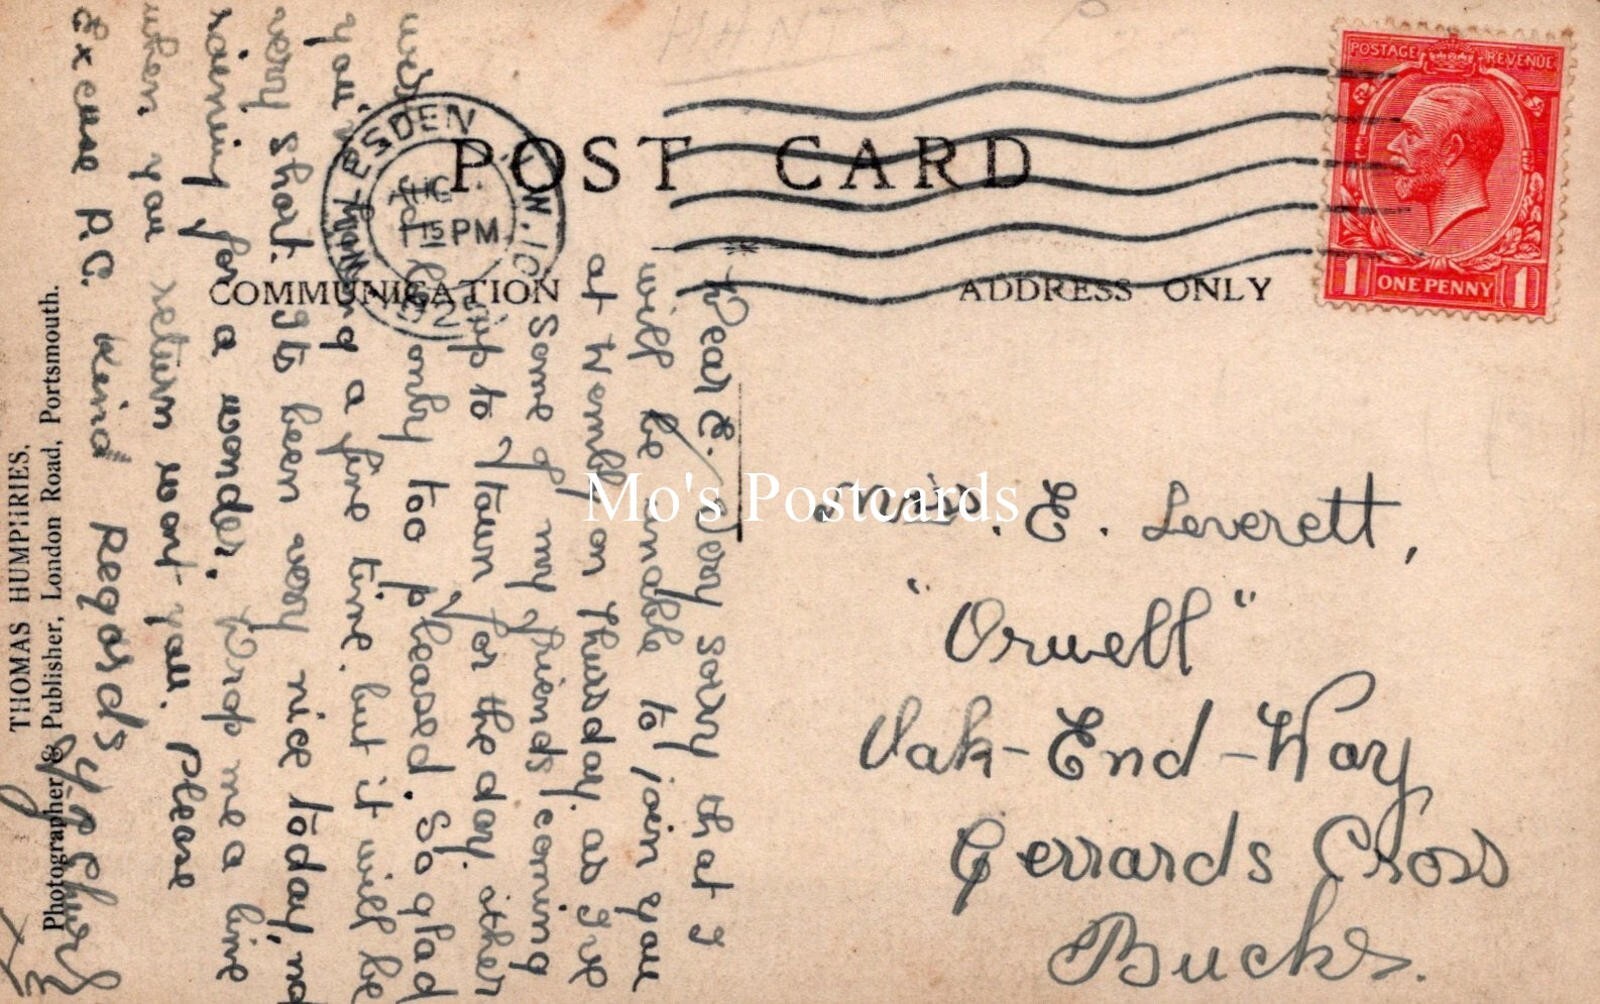 POST CARD
COMMUNICATION
ADDRESS ONLY
POSTAGE REVENUE
1 ONE PENNY 1
ESDEN N.W.10
AUG
1 15 PM
HANTS
Mo's Postcards
E. Leverett,
"Orwell"
Oak-End-Way
Gerrards Cross
Bucks.
Dear E. Very sorry that I
will be unable to join you
at Wembly on Thursday. as I've
Some of my friends coming
up to town for the day. other
only too pleased. So glad
having a fine time. but it will be
very short. It's been very nice today, no
raining for a wonder. Drop me a line
when you return wont you. Please
Excuse P.C. Kind Regards
THOMAS HUMPHRIES.
Photographer & Publisher, London Road, Portsmouth.